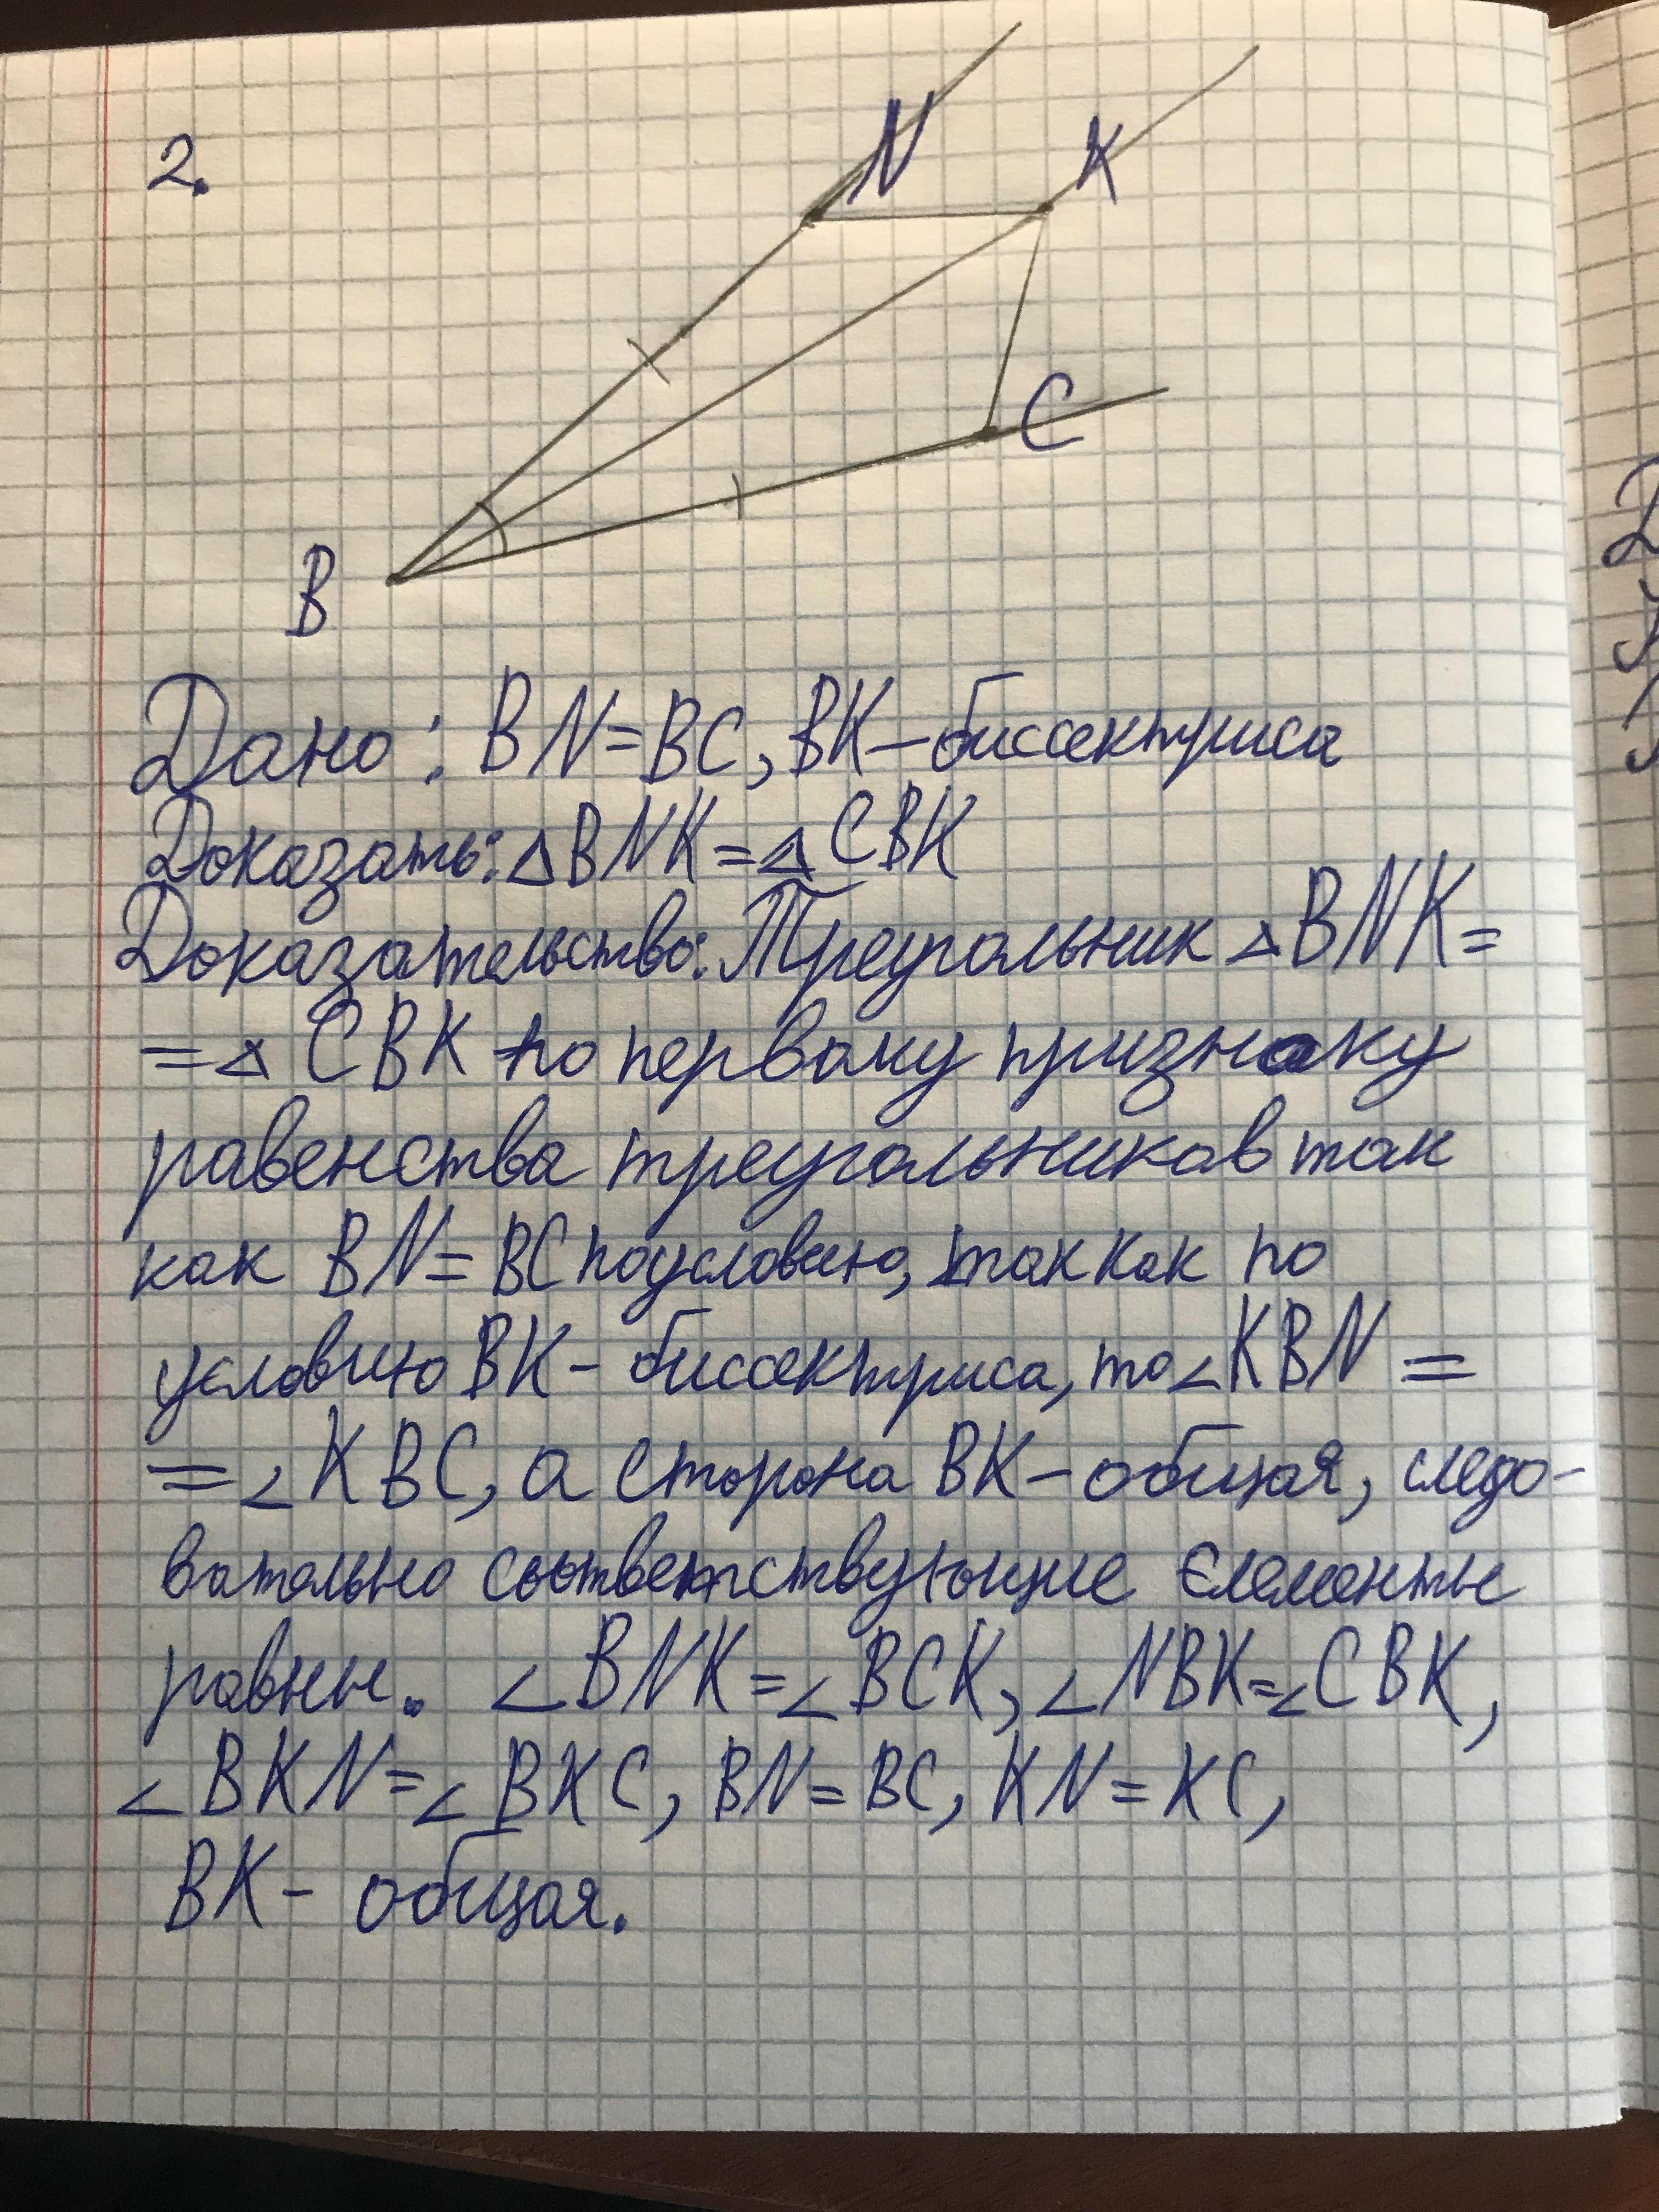 2.
N
K
C
B
Дано: BN=BC, BK-биссектриса
Доказать: △BNK=△CBK
Доказательство: Треугольник △BNK=
=△CBK по первому признаку
равенства треугольников так
как BN=BC по условию, так как по
условию BK-биссектриса, то ∠KBN=
=∠KBC, а сторона BK-общая, следо-
вательно соответствующие елементы
равны. ∠BNK=∠BCK, ∠NBK=∠CBK,
∠BKN=∠BKC, BN=BC, KN=KC,
BK- общая.